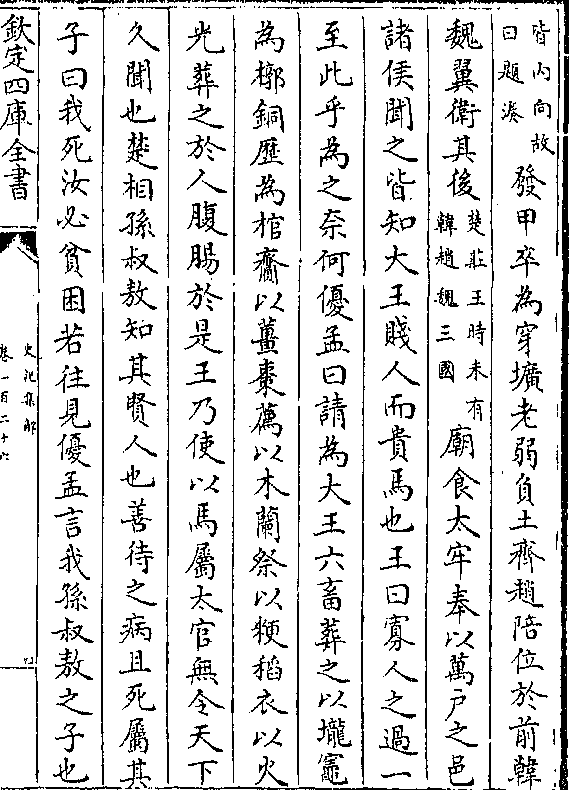 皆内向故
曰題湊
發甲卒為穿壙老弱負土齊趙陪位於前韓
魏翼衛其後
楚莊王時未有
韓趙魏三國
廟食太牢奉以萬户之邑
諸侯聞之皆知大王賤人而貴馬也王曰寡人之過一
至此乎為之奈何優孟曰請為大王六畜葬之以壠竈
為槨銅歴為棺齎以薑棗薦以木蘭祭以粳稻衣以火
光葬之於人腹腸於是王乃使以馬屬太官無令天下
久聞也楚相孫叔敖知其賢人也善待之病且死屬其
子曰我死汝必貧困若往見優孟言我孫叔敖之子也
欽定四庫全書
史記集解
卷一百二十六